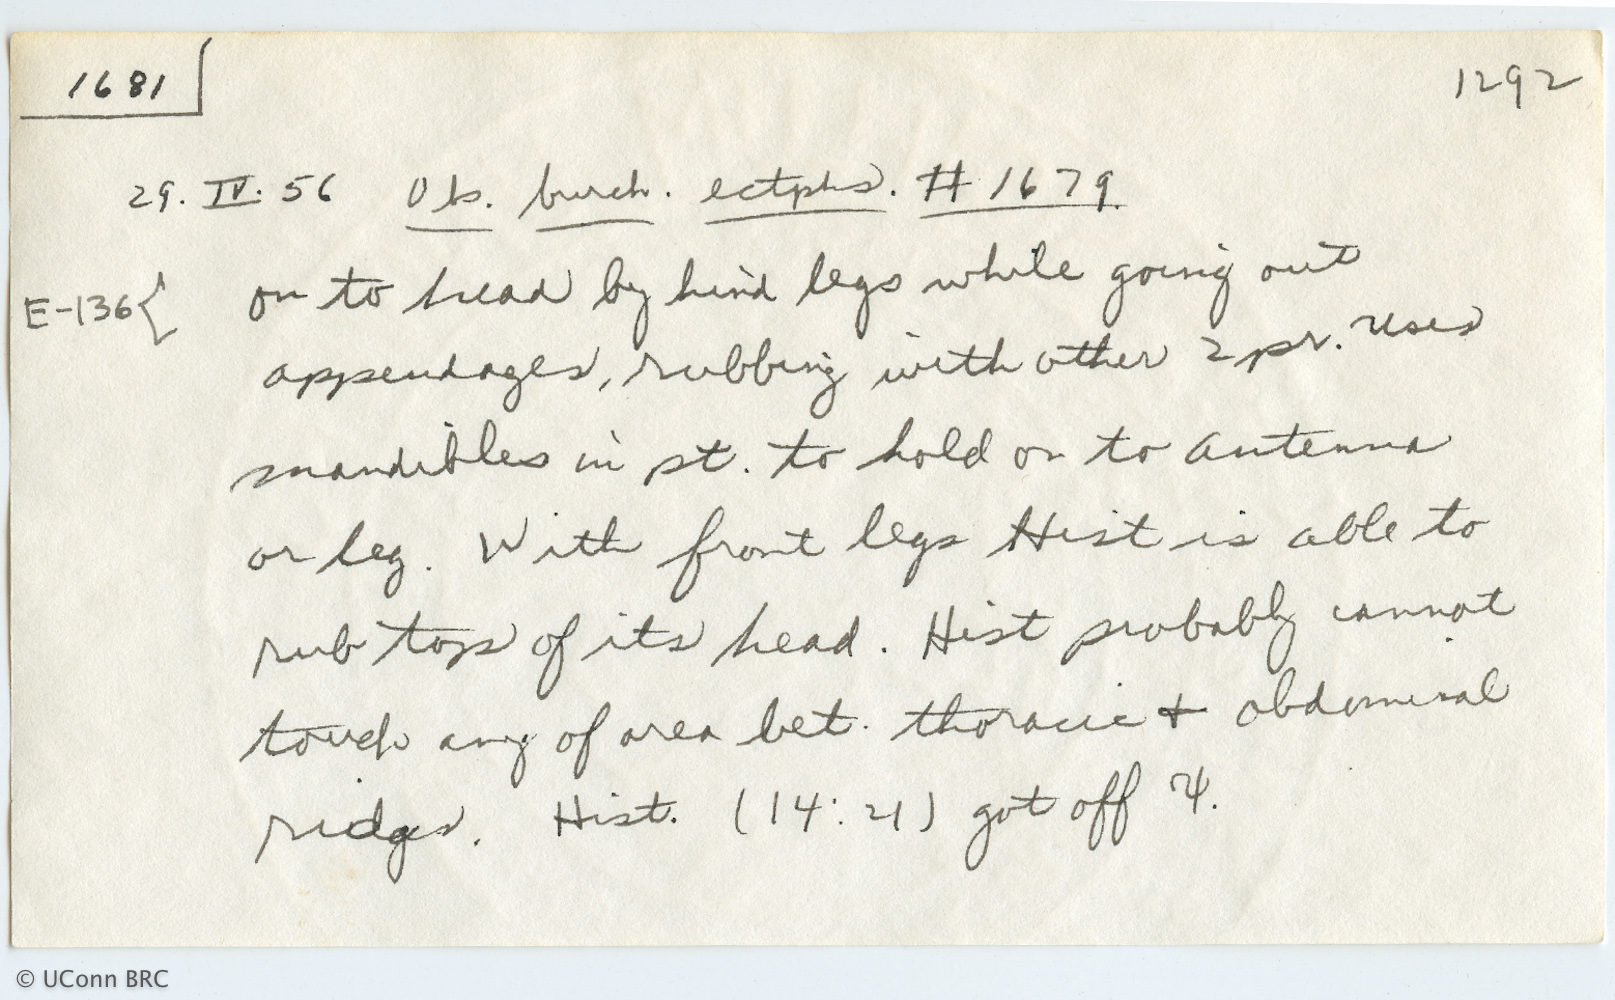 1681
1292
29. IV. 56 Ob. burch. ectphs. # 1679
E-136{ on to head by hind legs while going out
appendages, rubbing with other 2 pr. Uses
mandibles in pt. to hold on to antenna
or leg. With front legs Hist is able to
rub top of its head. Hist probably cannot
touch any of area bet. thoracic + abdominal
ridges. Hist. (14:21) got off
© UConn BRC